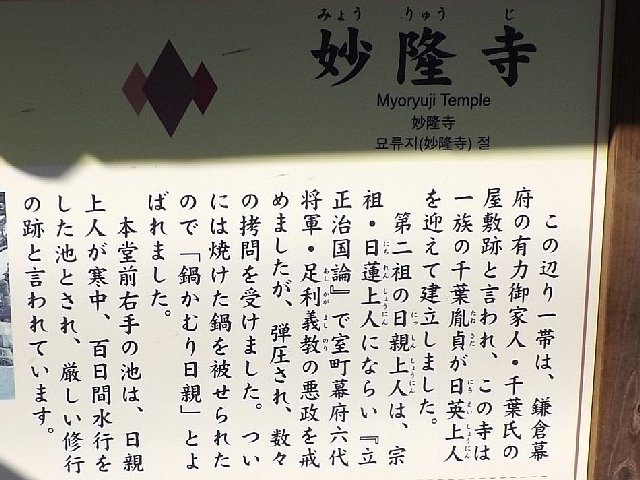 みょう りゅう じ
妙隆寺
Myoryuji Temple
妙隆寺
묘류지(妙隆寺) 절
この辺り一帯は、鎌倉幕
府の有力御家人・千葉氏の
屋敷跡と言われ、この寺は
一族の千葉胤貞が日英上人
を迎えて建立しました。
第二祖の日親上人は、宗
祖・日蓮上人にならい『立
正治国論』で室町幕府六代
将軍・足利義教の悪政を戒
めましたが、弾圧され、数々
の拷問を受けました。つい
には焼けた鍋を被せられた
ので「鍋かむり日親」とよ
ばれました。
本堂前右手の池は、日親
上人が寒中、百日間水行を
した池とされ、厳しい修行
の跡と言われています。